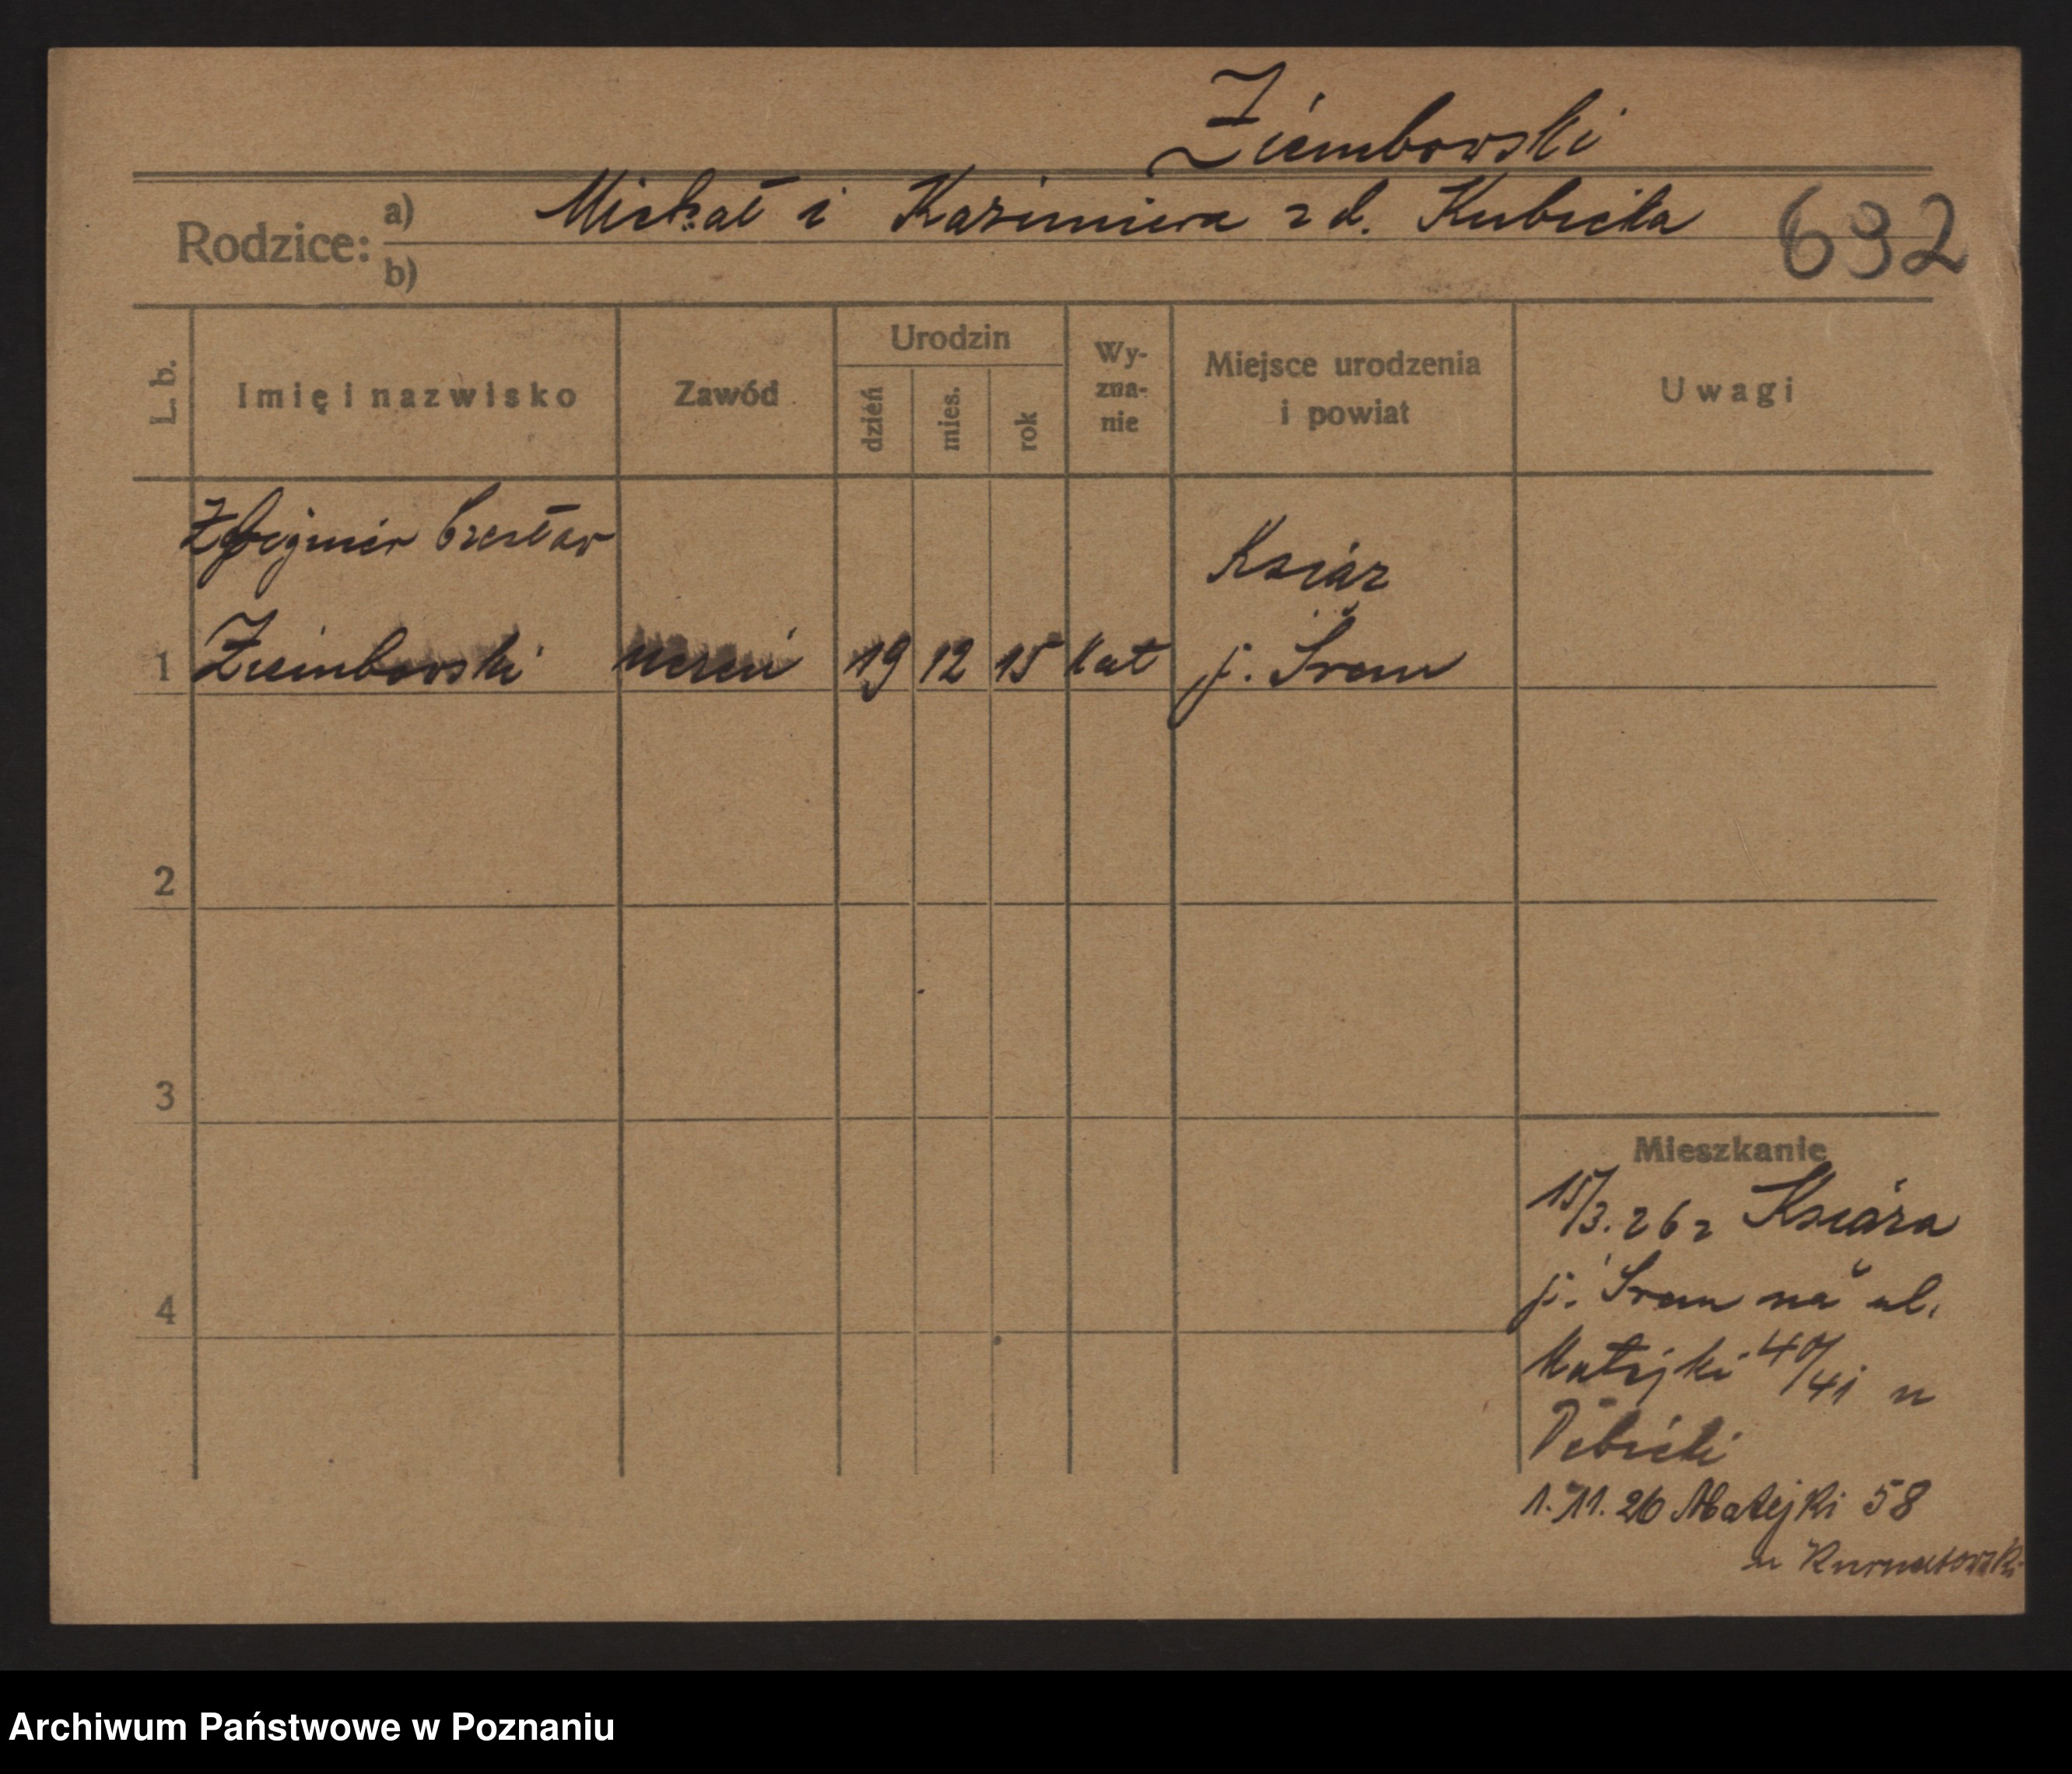 Ziembowski
Rodzice: a) Michał i Kazimiera z d. Kubicka
b)
692
L. b.
Imię i nazwisko
Zawód
Urodzin
dzień
mies.
rok
Wy-
zna-
nie
Miejsce urodzenia
i powiat
Uwagi
Czesław
Książ
1 Ziembowski uczeń 19 12 15 kat p. Śrem
2
3
4
Mieszkanie
15/3. 26 z Książa
p. Śrem na ul.
Matejki 40/41 u
Dębicki
1. 11. 26 Matejki 58
u Kurnatowski
Archiwum Państwowe w Poznaniu